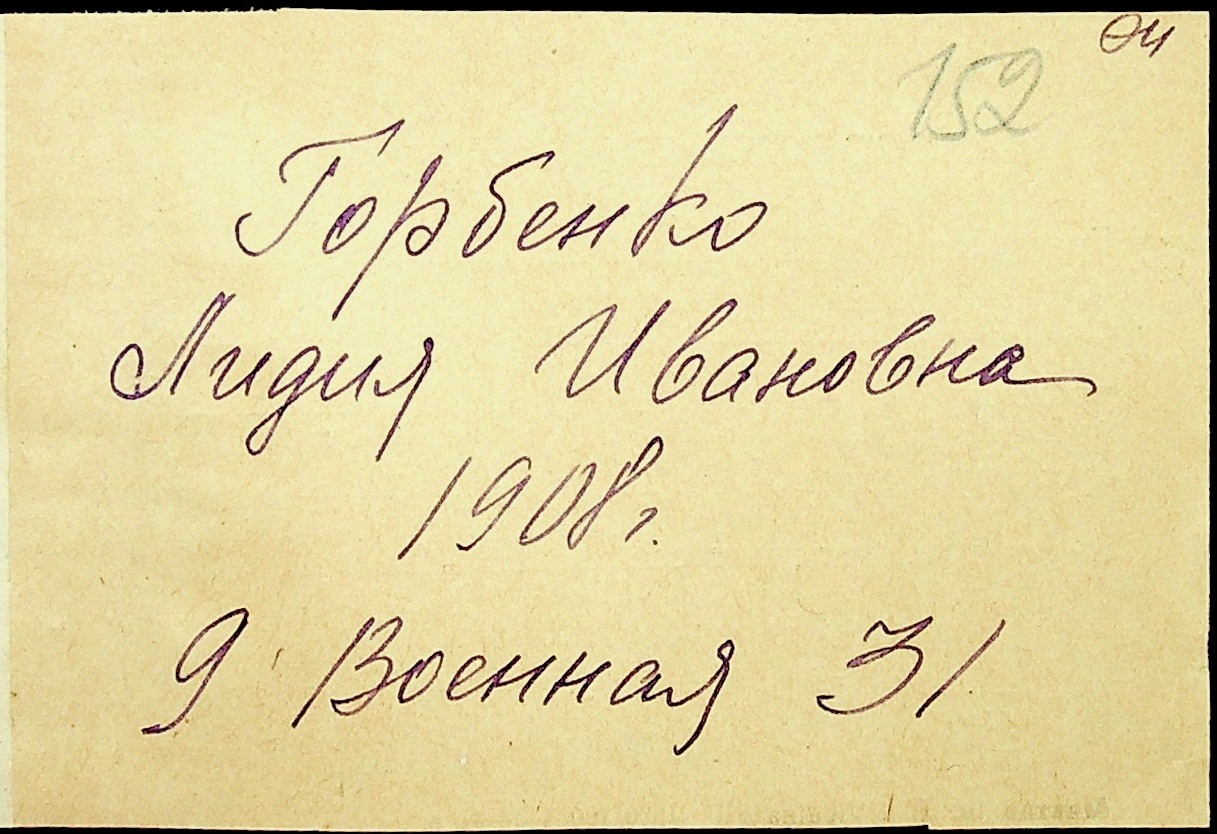 152
Горбенко
Лидия Ивановна
1908 г.
9 Военная 31